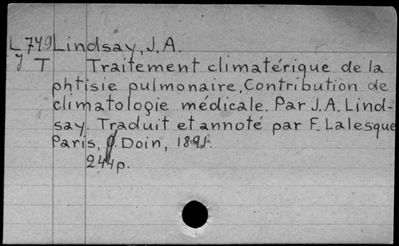 L749 Lindsay, J.A.
y T Traitement climatérique de la
phtisie pulmonaire, Contribution de
climatologie médicale. Par J.A. Lind-
say. Traduit et annoté par F. Lalesque
Paris, O. Doin, 1891.
244p.